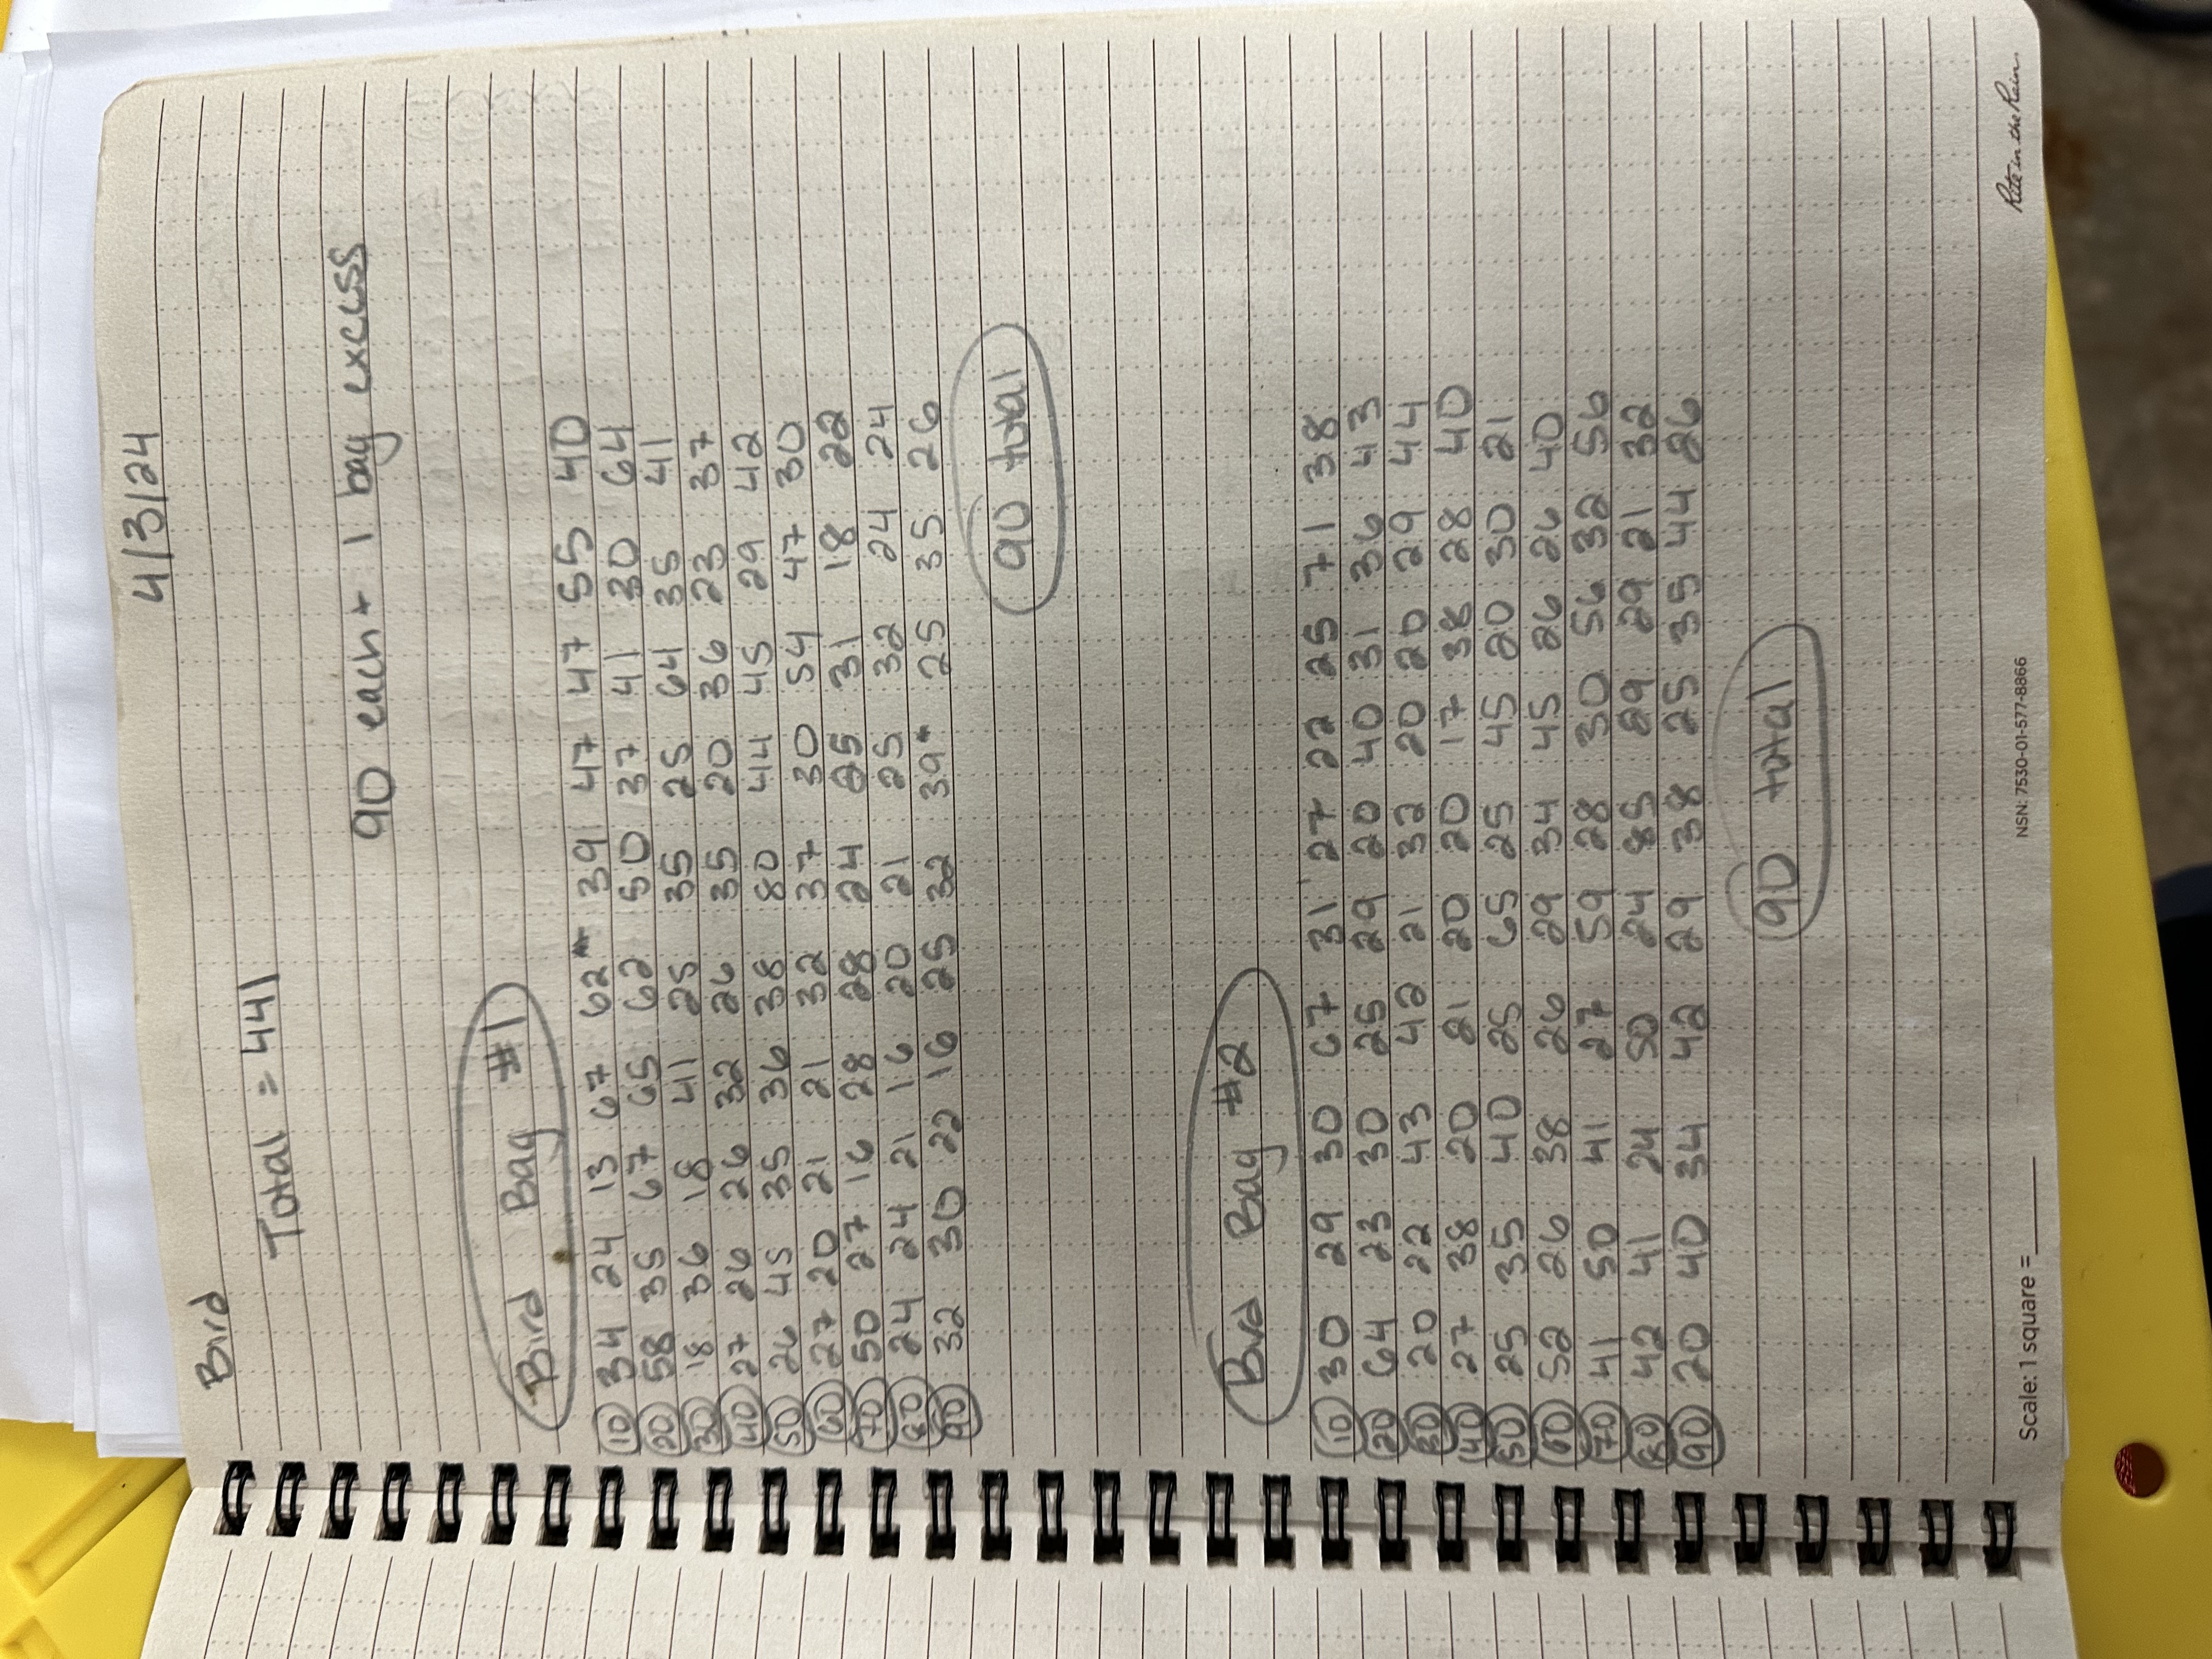 4/3/24
Bird
Total = 441
90 each + 1 bag excess
Bird Bag #1
10 34 24 13 67 62* 39 47 47 55 40
20 58 35 67 65 62 50 37 41 30 64
30 18 36 18 41 25 35 25 64 35 41
40 27 26 26 32 26 35 20 36 23 37
50 26 45 35 36 38 80 44 45 29 42
60 27 20 21 21 32 37 30 54 47 30
70 50 27 16 28 28 24 25 31 18 22
80 24 24 21 16 20 21 25 32 24 24
90 32 30 22 16 25 32 39* 25 35 26
90 total
Bird Bag #2
10 30 29 30 67 31 27 22 25 71 38
20 64 23 30 25 29 20 40 31 36 43
30 20 22 43 42 21 32 20 20 29 44
40 27 38 20 21 20 20 17 38 28 40
50 25 35 40 25 65 25 45 20 30 21
60 52 26 38 26 29 34 45 26 26 40
70 41 50 41 27 59 28 30 56 32 56
80 42 41 24 50 24 85 29 29 21 32
90 20 40 34 42 29 38 25 35 44 26
90 total
Scale: 1 square =______ NSN: 7530-01-577-8866 Rite in the Rain